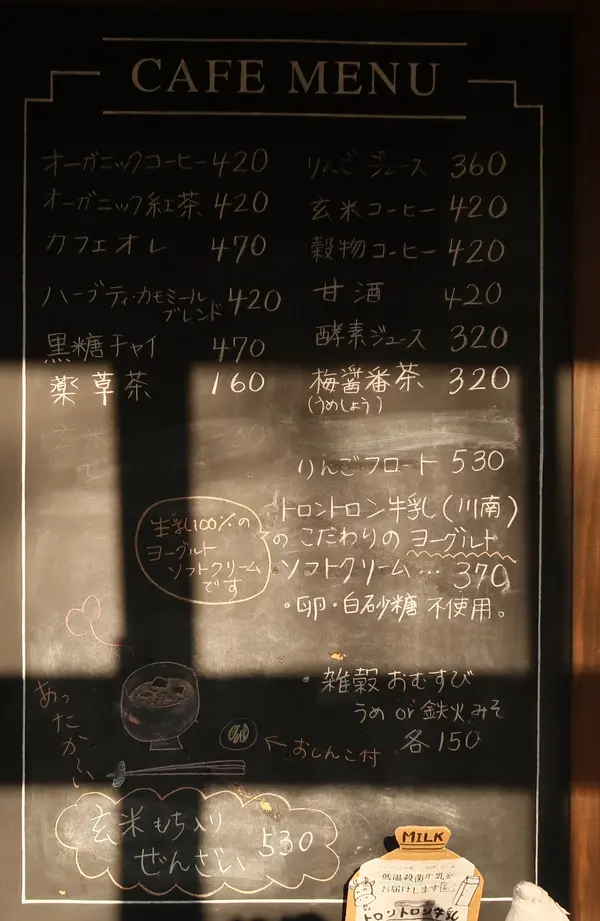 CAFE MENU
オーガニックコーヒー 420
オーガニック紅茶 420
カフェオレ 470
ハーブティ・カモミール
ブレンド 420
黒糖チャイ 470
薬草茶 160
りんごジュース 360
玄米コーヒー 420
穀物コーヒー 420
甘酒 420
酵素ジュース 320
梅醤番茶 320
(うめしょう)
りんごフロート 530
トロントロン牛乳(川南)
のこだわりのヨーグルト
ソフトクリーム… 370
・卵・白砂糖不使用。
生乳100%の
ヨーグルト
ソフトクリーム
です
・雑穀おむすび
うめ or 鉄火みそ
各150
あったか〜い
←おしんこ付
玄米もち入り
ぜんざい 530
MILK
低温殺菌牛乳を
お届けします
トロントロン牛乳